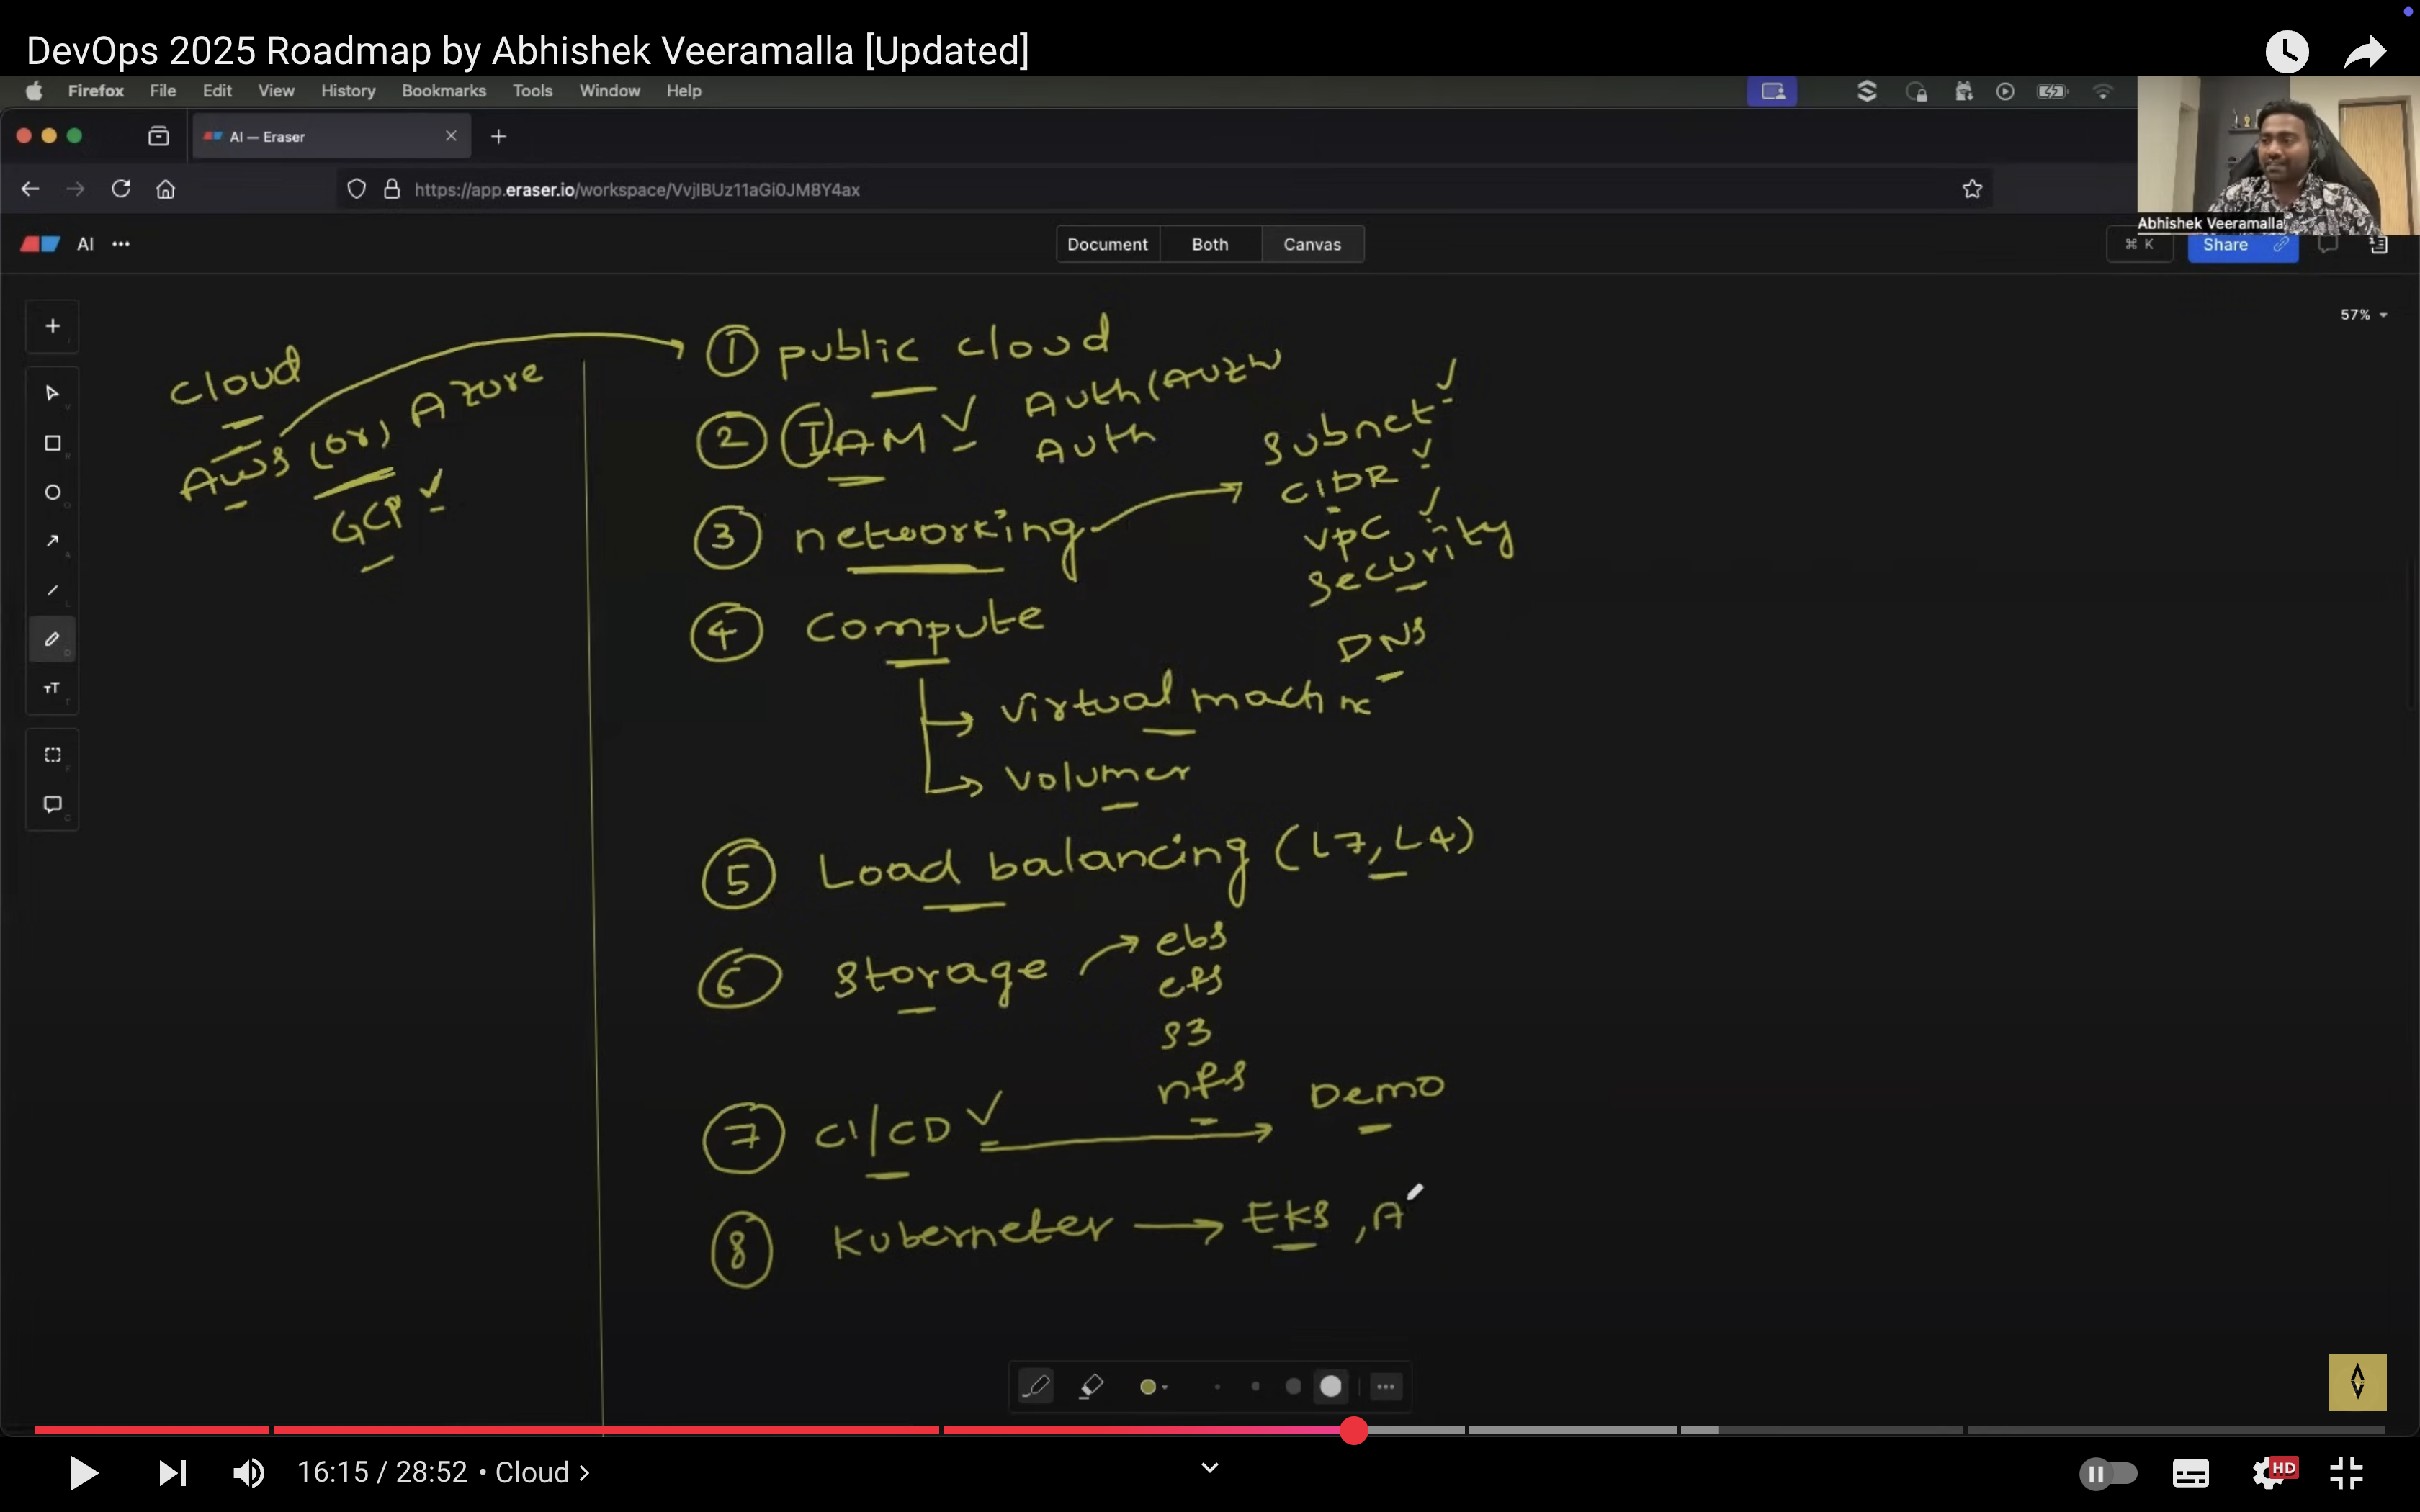 DevOps 2025 Roadmap by Abhishek Veeramalla [Updated]
Firefox File Edit View History Bookmarks Tools Window Help
AI — Eraser
https://app.eraser.io/workspace/VvjIBUz11aGi0JM8Y4ax
Abhishek Veeramalla
AI
Document Both Canvas
⌘ K
Share
57%
cloud
Aws (or) Azure
GCP ✓
① public cloud
② IAM ✓ Auth (Auzn
Auth
③ networking → Subnet ✓
CIDR ✓
VPC ✓
Security
DNS
④ Compute
→ Virtual machine
→ Volumes
⑤ Load balancing (L7, L4)
⑥ Storage → ebs
efs
S3
nfs
⑦ CI/CD ✓ → Demo
⑧ Kubernetes → EKS, A
16:15 / 28:52 • Cloud >
HD